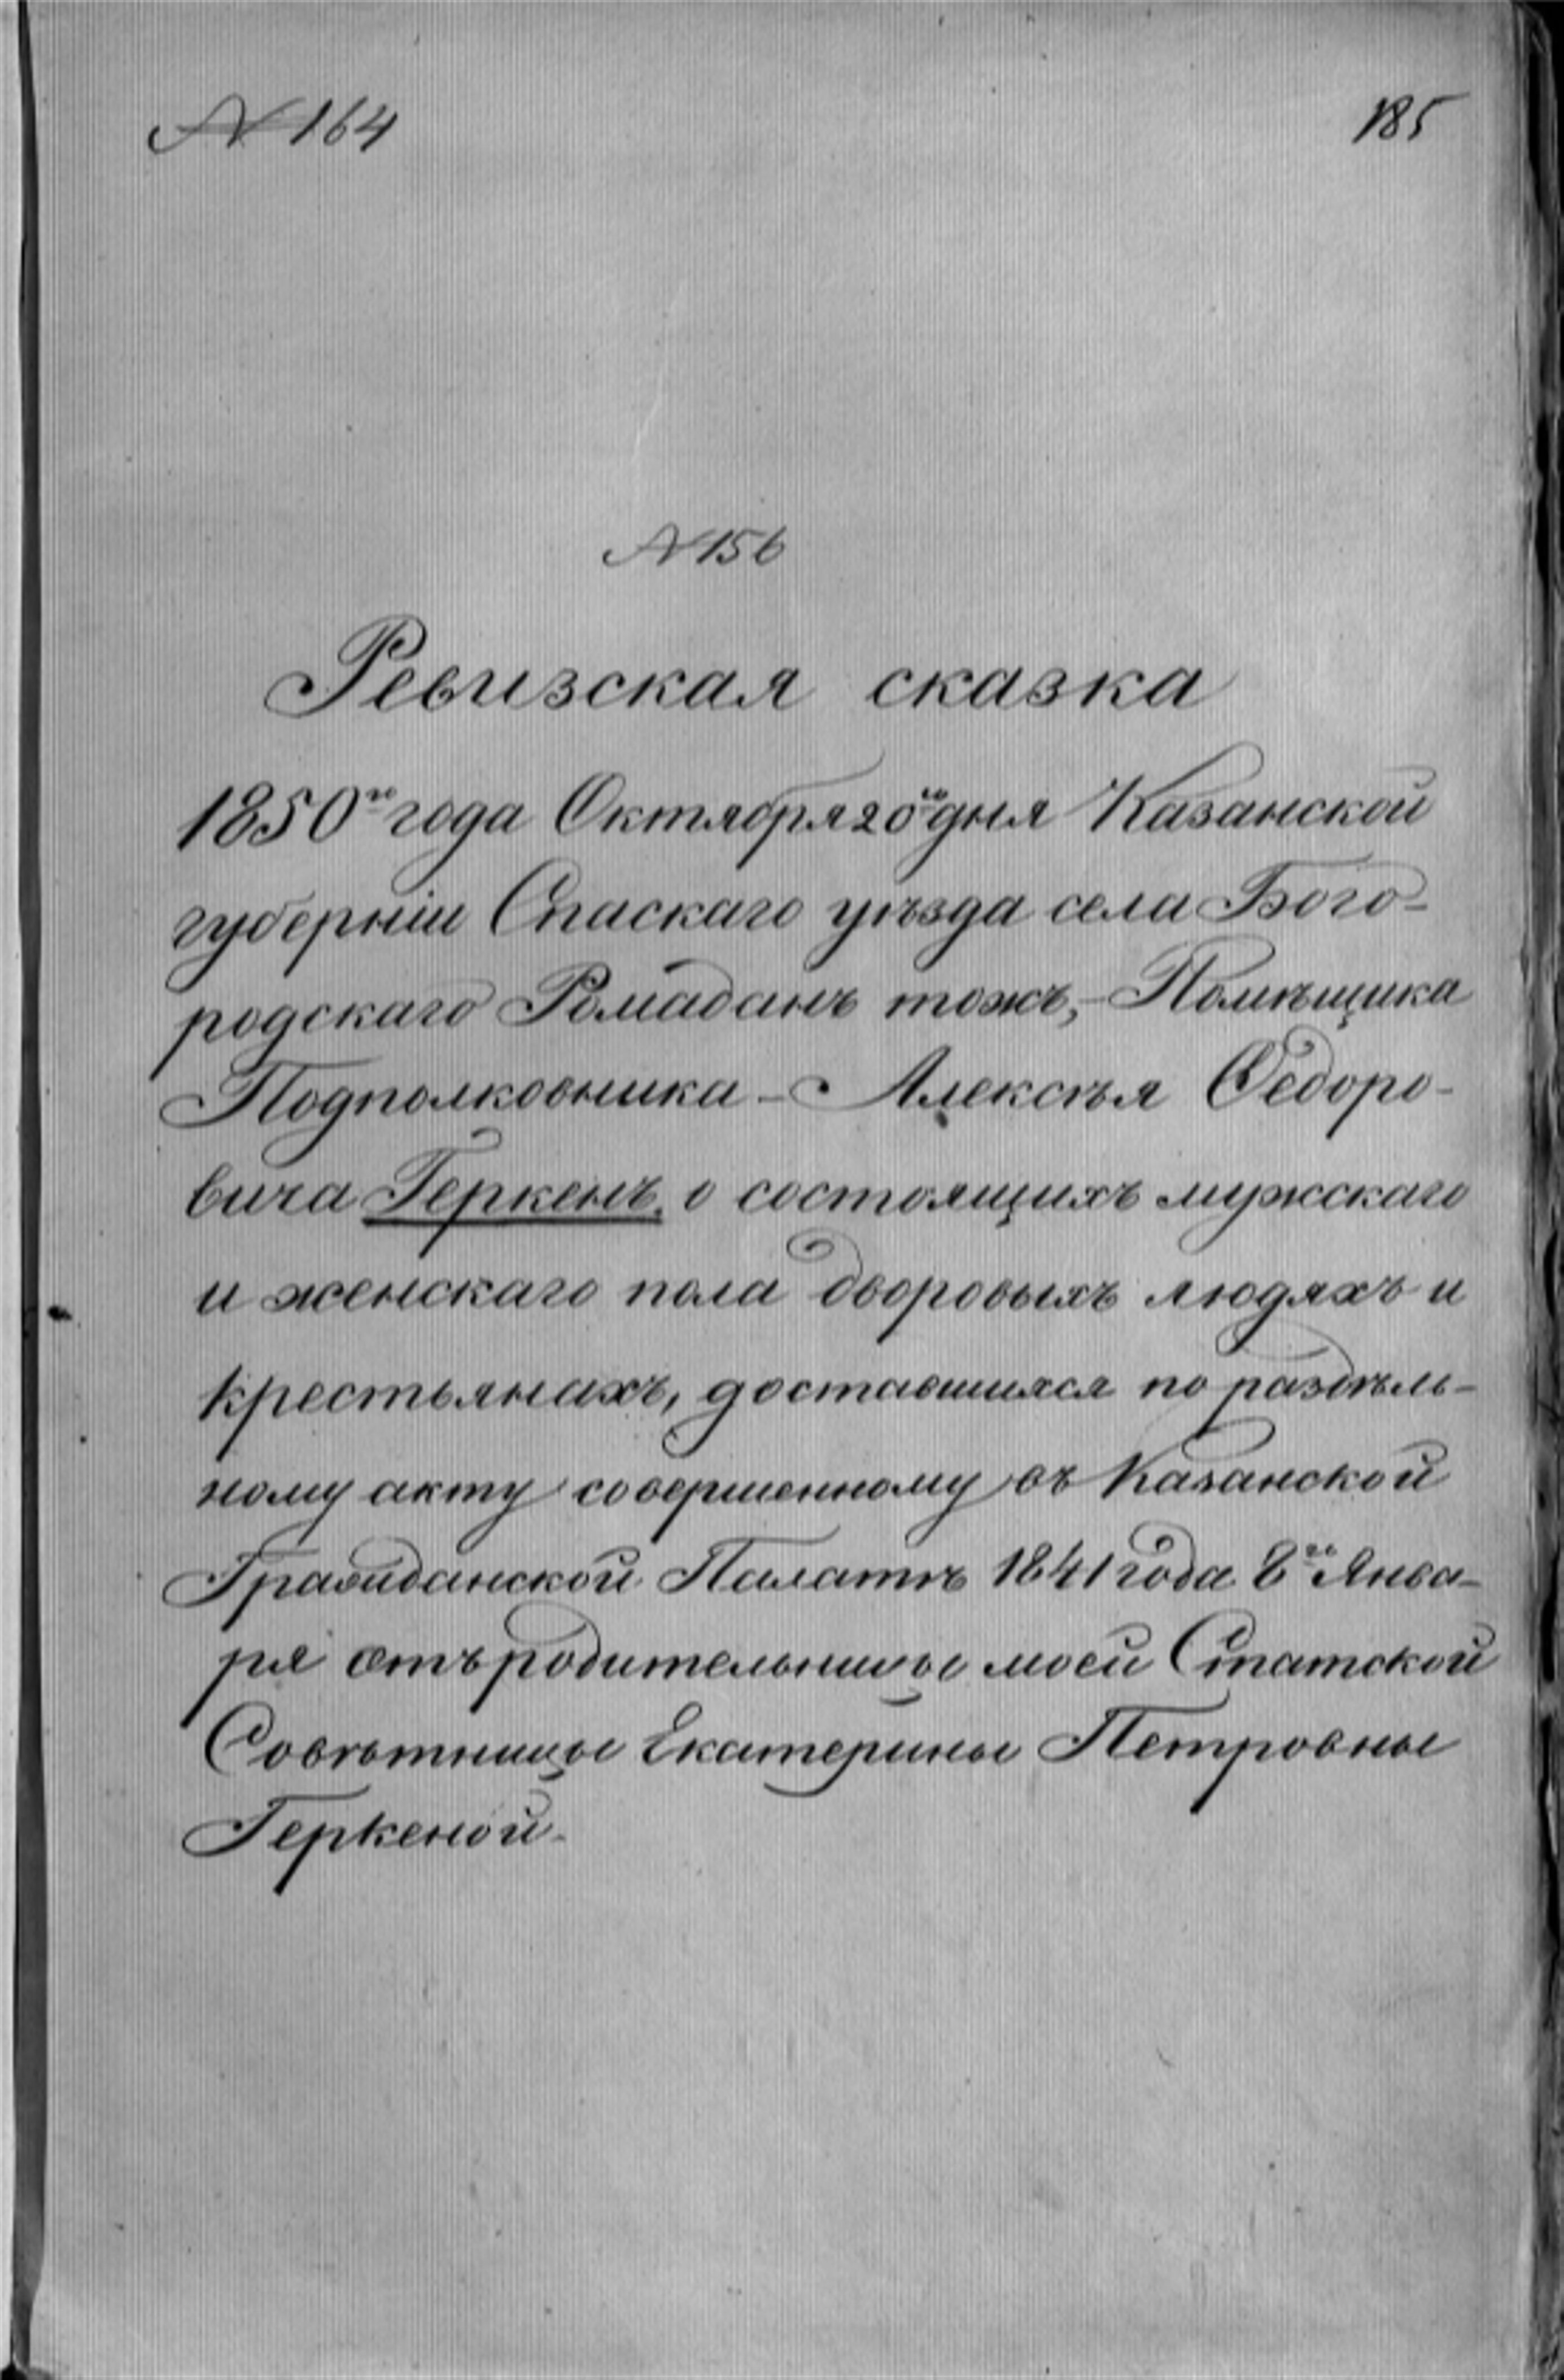 № 164
185
№ 156
Ревизская сказка
1850го года Октября 20го дня Казанской
губерніи Спаскаго уѣзда села Бого-
родскаго Ромаданъ тожъ,- Помѣщика
Подполковника - Алексѣя Ѳедоро-
вича Геркенъ, о состоящихъ мужскаго
и женскаго пола дворовыхъ людяхъ и
крестьянахъ, доставшихся по раздѣль-
ному акту совершенному въ Казанской
Гражданской Палатѣ 1841 года 8го Янва-
ря отъ родительницы моей Статской
Совѣтницы Екатерины Петровны
Геркеной.